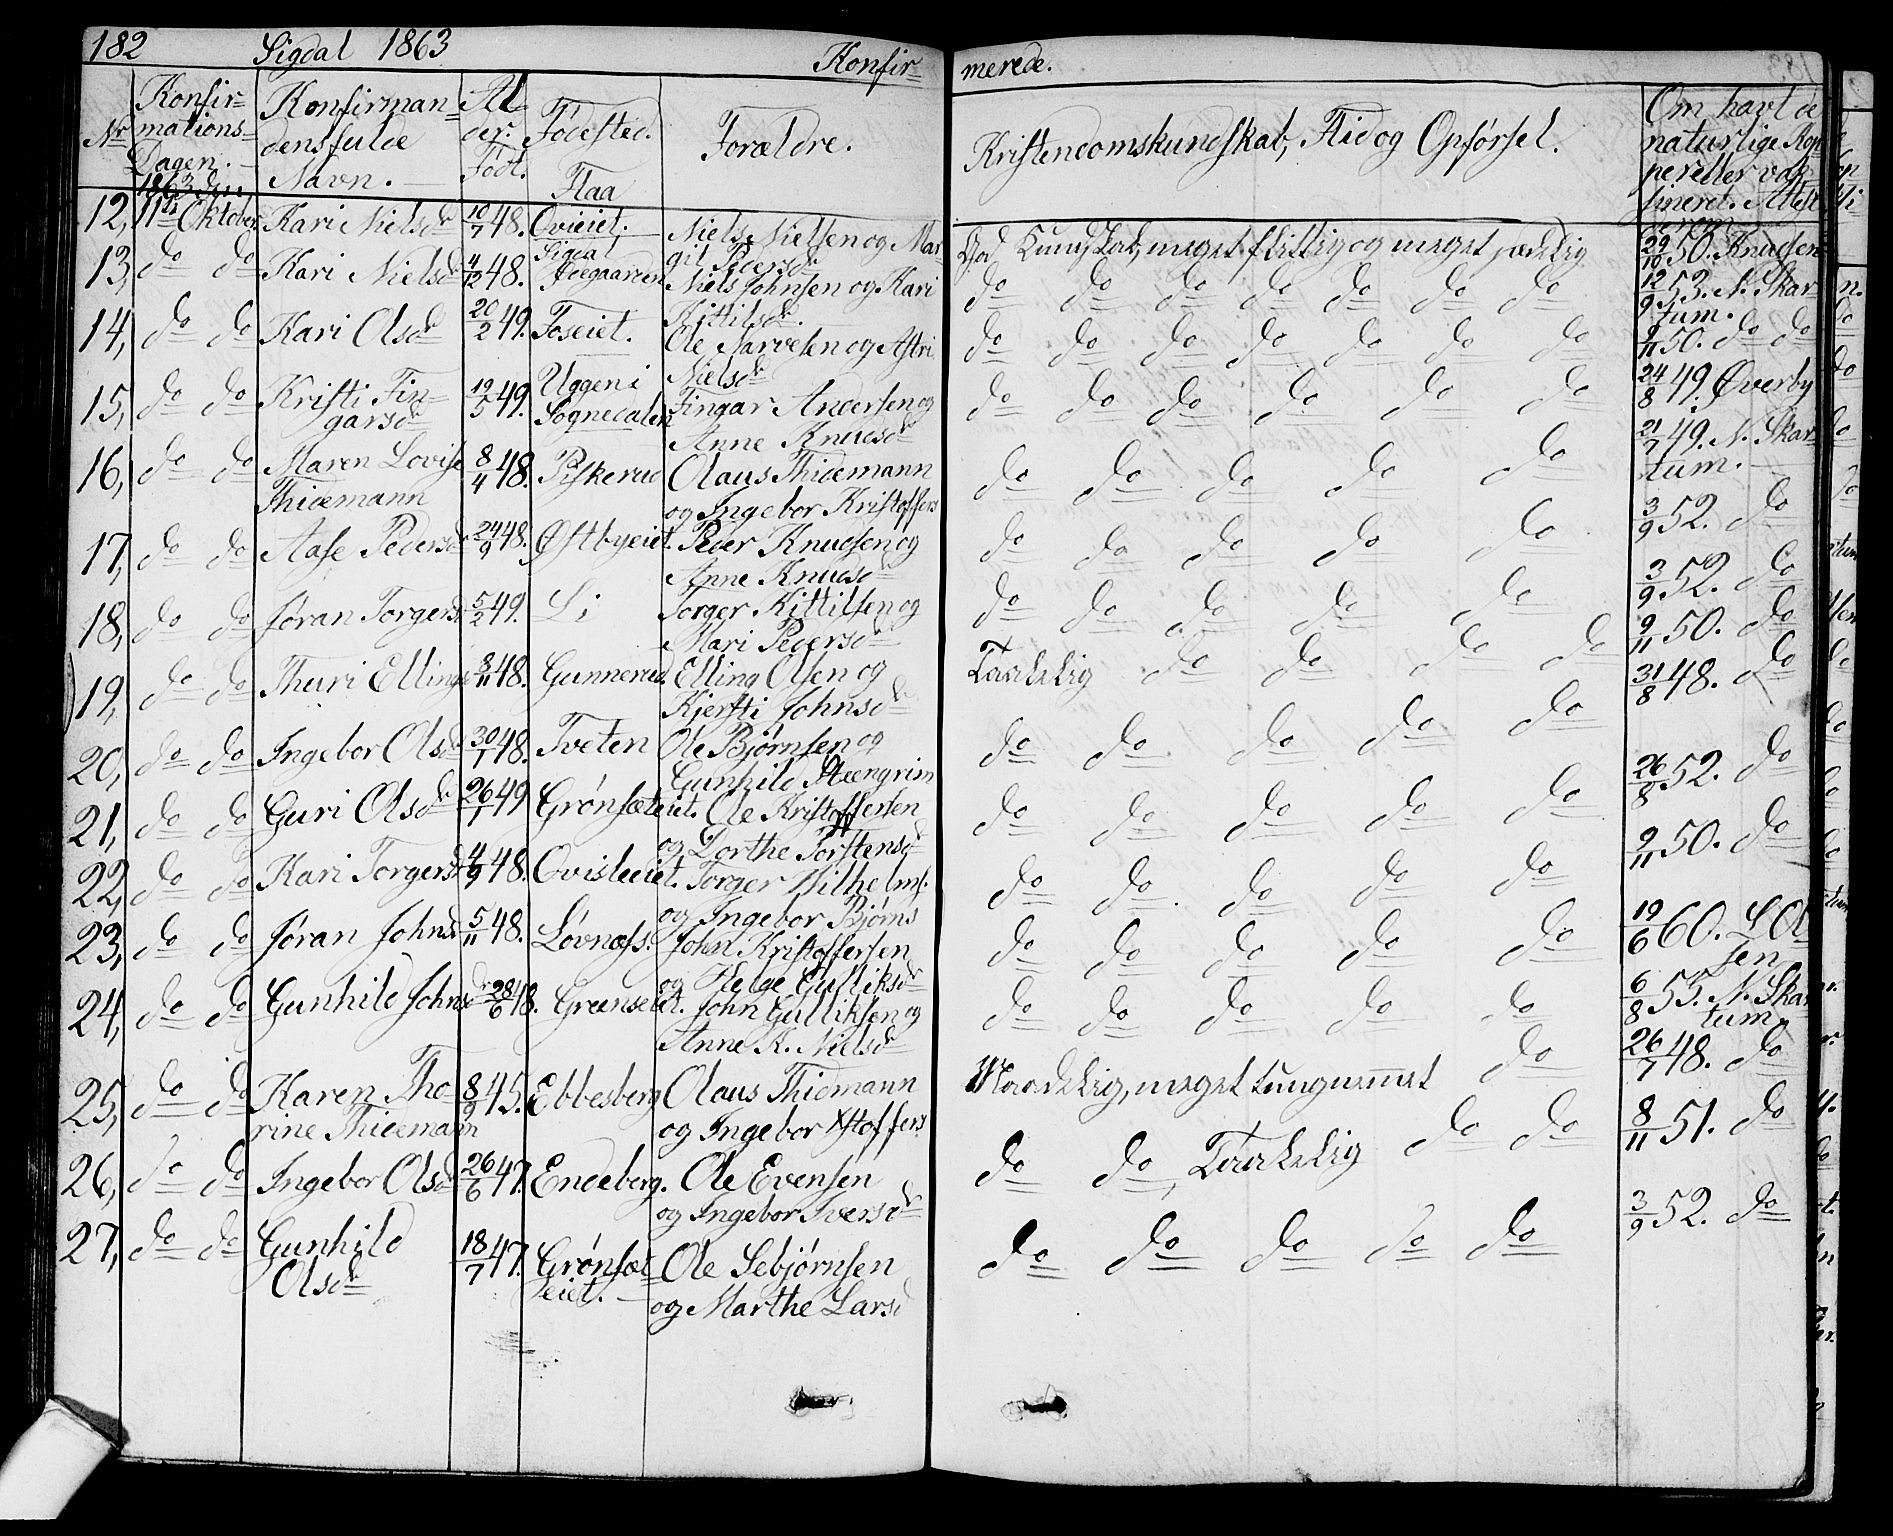 182 Sigdal 1863 Konfir=
merede.
Nr
Konfir=
mations=
Dagen.
1863 den
Konfirman=
dens fulde
Navn.
Al=
der.
Født.
Fødested.
Forældre.
Kristendomskundskab, Flid og Opførsel.
Om havt de
naturlige Kop
per eller vak
sineret. Attest
derom
12, 11te Oktober Kari Nielsdr 10/7 48. Flaa
Nielsen og Mar
git Pedersdr
God Kundskab, meget flittig og meget sædelig 29/10 50. Knudsen
13, do do Kari Nielsdr 4/12 48. Sigdal
Niels Johnsen og Kari
Kittilsdr
do do do do do do do 12/9 53. N. Skar
tum.
14, do do Kari Olsdr 20/2 49. Foseiet.
Ole Narvesen og Astri
Nielsdr
do do do do do do do 9/11 50. do do
15, do do Kristi Fin=
garsdr 19/5 49. Uggen i
Sognedalen
Fingar Andersen og
Anne Knudsdr
do do do do do do 24/8 49. Øverby
16, do do Maren Lovise
Thidemann 8/4 48. Piskerud
Olaus Thidemann
og Ingebor Kristoffers
do do do do do 21/7 49. N. Skar
tum.
17, do do Aase Pedersdr 24/9 48. Østbyeiet.
Peder Knudsen og
Anne Knudsdr
do do do do do 3/9 52. do
18, do do Jøran Torgersd 5/2 49. Li
Torger Kittilsen og
Mari Pedersdr
do do do do do 3/9 52. do
19, do do Thuri Ellings 8/11 48. Gunnerud.
Elling Olsen og
Kjersti Johnsdr
Taalelig do do do do 9/11 50. do
20, do do Ingebor Olsdr 30/1 48. Tveten
Ole Bjørnsen og
Gunhild Steengrim
do do do do do 31/8 48. do
21, do do Guri Olsdr 26/1 49 Grønsæteiet.
Ole Kristoffersen
og Dorthe Torstensd
do do do do do 26/8 52. do
22, do do Kari Torgersd 4/9 48. Qvisleeiet.
Torger Wilhelms.
og Ingebor Bjørns
do do do do do 9/11 50. do
23, do do Jøran Johnsd 5/11 48. Løvnæss.
John Kristoffersen
og Helge Gulliksdr
do do do do do 19/6 60. L Ol
sen
24, do do Gunhild Johnsdr 28/6 48. Grænseiet.
John Gulliksen og
Anne K. Nielsdr
do do do do do 6/8 55. N. Skar
tum.
25, do do Karen Tho
rine Thidemann 8/9 45. Ebbesberg
Olaus Thidmann
og Ingebor Xstoffers
Maadelig, meget tungnemmet do 26/7 48. do
26, do do Ingebor Olsdr 26/6 47. Endeberg.
Ole Evensen
og Ingebor Iversdr
do do, Taalelig do do 8/11 51. do
27, do do Gunhild
Olsdr 18/7 47. Grønsæt=
eiet.
Ole Sebjørnsen
og Marthe Larsd
do do do do do 3/9 52. do